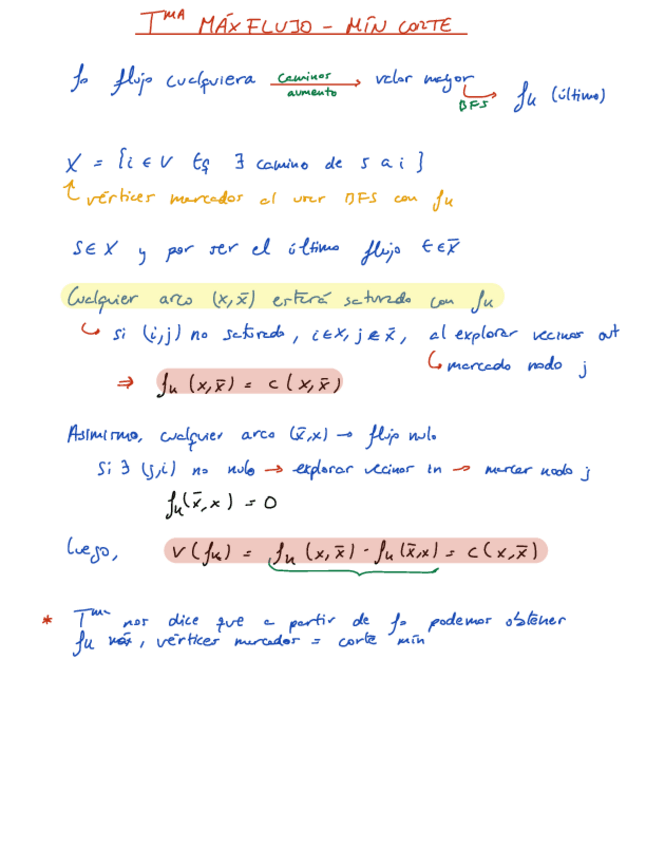 Tᵐᴬ MÁX FLUJO - MÍN CORTE
f₀ flujo cualquiera caminos aumento → valor mayor BFS → fₖ (último)
X = {i ∈ V tq ∃ camino de s a i}
↑ vértices marcados al usar BFS con fₖ
s ∈ X y por ser el último flujo t ∈ X̄
Cualquier arco (x, x̄) estará saturado con fₖ
↪ si (i,j) no saturado, i ∈ X, j ∈ x̄, al explorar vecinos out
↪ marcado nodo j
⇒ fₖ (x, x̄) = c (x, x̄)
Asimismo, cualquier arco (x̄, x) → flujo nulo
Si ∃ (j,i) no nulo → explorar vecinos in → marcar nodo j
fₖ(x̄, x) = 0
Luego, v(fₖ) = fₖ (x, x̄) - fₖ (x̄, x) = c (x, x̄)
* Tᵐᵃ nos dice que a partir de f₀ podemos obtener
fₖ máx, vértices marcados = corte mín